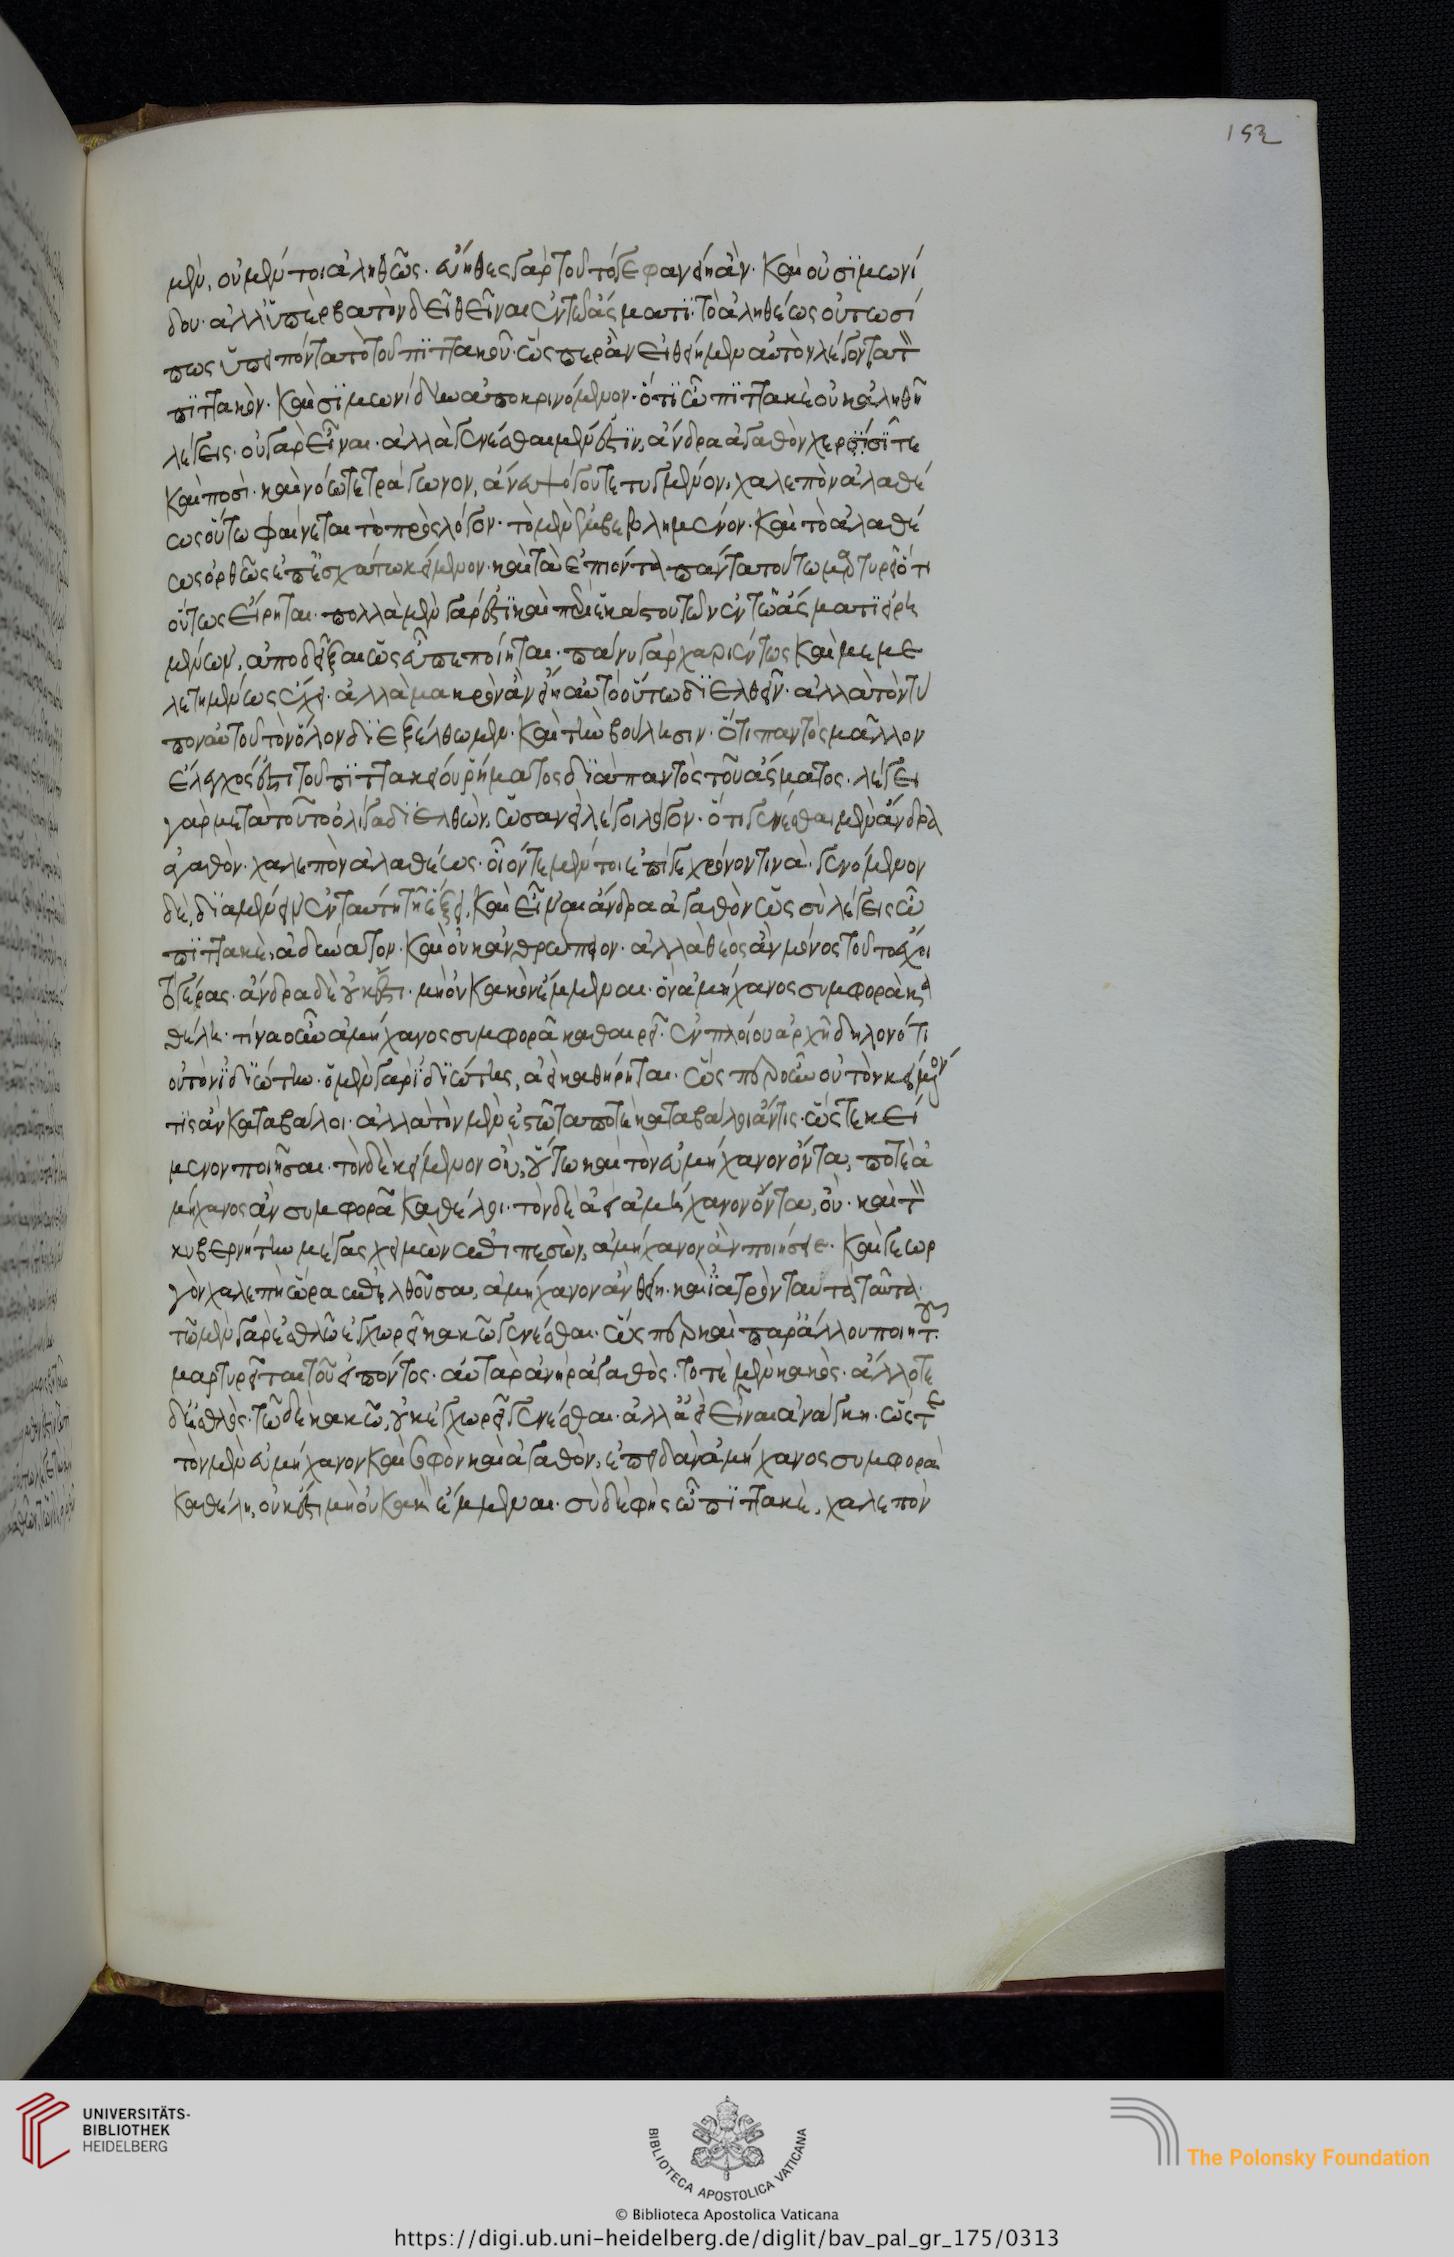 152
μὲν, οὐ μέντοι ἀληθῶς. εὔηθες γὰρ τοῦτό γε φανείη ἂν. καὶ οὐ σιμωνί
δου. ἀλλ' ὑπερβατὸν δεῖ θεῖναι ἐν τῶ ἄσματι. τὸ ἀληθέως οὑτωσί
πως ὑπειπόντα τὸ τοῦ πιττακοῦ. ὥσπερ ἂν εἰ θείημεν αὐτὸν λέγοντα τὸν
πιττακὸν. καὶ σιμωνίδην ἀποκρινόμενον. ὅτι ὦ πιττακὲ οὐκ ἀληθῆ
λέγεις. οὐ γὰρ εἶναι. ἀλλὰ γενέσθαι μέν ἐστιν, ἄνδρα ἀγαθὸν χερσί τε
καὶ ποσὶ. καὶ νόω τετράγωνον, ἄνευ ψόγου τετυγμένον, χαλεπὸν ἀλαθέ
ως οὕτω φαίνεται τὸ πρὸς λόγον. τὸ μὲν ἐμβεβλημένον. καὶ τὸ ἀλαθέ
ως ὀρθῶς ἐπ' ἐσχάτω κείμενον. καὶ τὰ ἐπιόντα πάντα τούτω μαρτυρεῖ ὅτι
οὕτως εἴρηται. πολλὰ μὲν γάρ ἐστι καὶ περὶ ἑκάστου τῶν ἐν τῶ ἄσματι εἰρη
μένων, ἀποδεῖξαι ὡς εὖ πεποίηται. πάνυ γὰρ χαριέντως καὶ μεμε
λετημένως ἔχει. ἀλλὰ μακρὸν ἂν εἴη αὐτὸ οὕτω διελθεῖν. ἀλλὰ τὸν τύ
πον αὐτοῦ τὸν ὅλον διεξέλθωμεν. καὶ τὴν βούλησιν. ὅτι παντὸς μᾶλλον
ἔλεγχός ἐστι τοῦ πιττακείου ῥήματος διὰ παντὸς τοῦ ἄσματος. λέγει
γὰρ μετὰ τοῦτο ὀλίγα διελθὼν, ὡς ἂν εἰ λέγοι λόγον. ὅτι γενέσθαι μὲν ἄνδρα
ἀγαθὸν. χαλεπὸν ἀλαθέως. οἷόν τε μέντοι ἐπί γε χρόνον τινὰ. γενόμενον
δὲ, διαμένειν ἐν ταύτη τῆ ἕξει, καὶ εἶναι ἄνδρα ἀγαθὸν ὡς σὺ λέγεις ὦ
πιττακὲ, ἀδύνατον. καὶ οὐκ ἀνθρώπειον. ἀλλὰ θεὸς ἂν μόνος τοῦτο ἔχοι
τὸ γέρας. ἄνδρα δὲ οὐκ ἔστι. μὴ οὐ κακὸν ἔμμεναι. ὃν ἀμήχανος συμφορὰ κα
θέλη. τίνα οὖν ἀμήχανος συμφορᾶ καθαιρεῖ. ἐν πλοίου ἀρχῆ δηλονότι
οὐ τὸν ἰδιώτην. ὁ μὲν γὰρ ἰδιώτης, ἀεὶ καθήρηται. ὥσπερ οὖν οὐ τὸν κείμενον
τις ἂν καταβάλοι. ἀλλὰ τὸν μὲν ἑστῶτα ποτὲ καταβάλοι ἄν τις. ὥστε κεί
μενον ποιῆσαι. τὸν δὲ κείμενον οὐ, οὕτω καὶ τὸν εὐμήχανον ὄντα, ποτὲ ἀ
μήχανος ἂν συμφορᾶ καθέλοι. τὸν δὲ ἀεὶ ἀμήχανον ὄντα, οὐ. καὶ τὸν
κυβερνήτην μέγας χειμὼν ἐπιπεσὼν, ἀμήχανον ἂν ποιήσειε. καὶ γεωρ
γὸν χαλεπὴ ὥρα ἐπελθοῦσα, ἀμήχανον ἂν θείη. καὶ ἰατρὸν ταὐτὰ ταῦτα.
τῶ μὲν γὰρ ἐσθλῶ ἐγχωρεῖ κακῶ γενέσθαι. ὥσπερ καὶ παρ' ἄλλου ποιητοῦ
μαρτυρεῖται τοῦ εἰπόντος. αὐτὰρ ἀνὴρ ἀγαθὸς. τοτὲ μὲν κακὸς. ἄλλοτε
δ' ἐσθλὸς. τῶ δὲ κακῶ, οὐκ ἐγχωρεῖ γενέσθαι. ἀλλ' ἀεὶ εἶναι ἀνάγκη. ὥστε
τὸν μὲν εὐμήχανον καὶ σοφὸν καὶ ἀγαθὸν, ἐπειδὰν ἀμήχανος συμφορὰ
καθέλη, οὐκ ἔστι μὴ οὐ κακὸν ἔμμεναι. σὺ δὲ φὴς ὦ πιττακὲ, χαλεπὸν
UNIVERSITÄTS-
BIBLIOTHEK
HEIDELBERG
BIBLIOTECA APOSTOLICA VATICANA
The Polonsky Foundation
© Biblioteca Apostolica Vaticana
https://digi.ub.uni-heidelberg.de/diglit/bav_pal_gr_175/0313